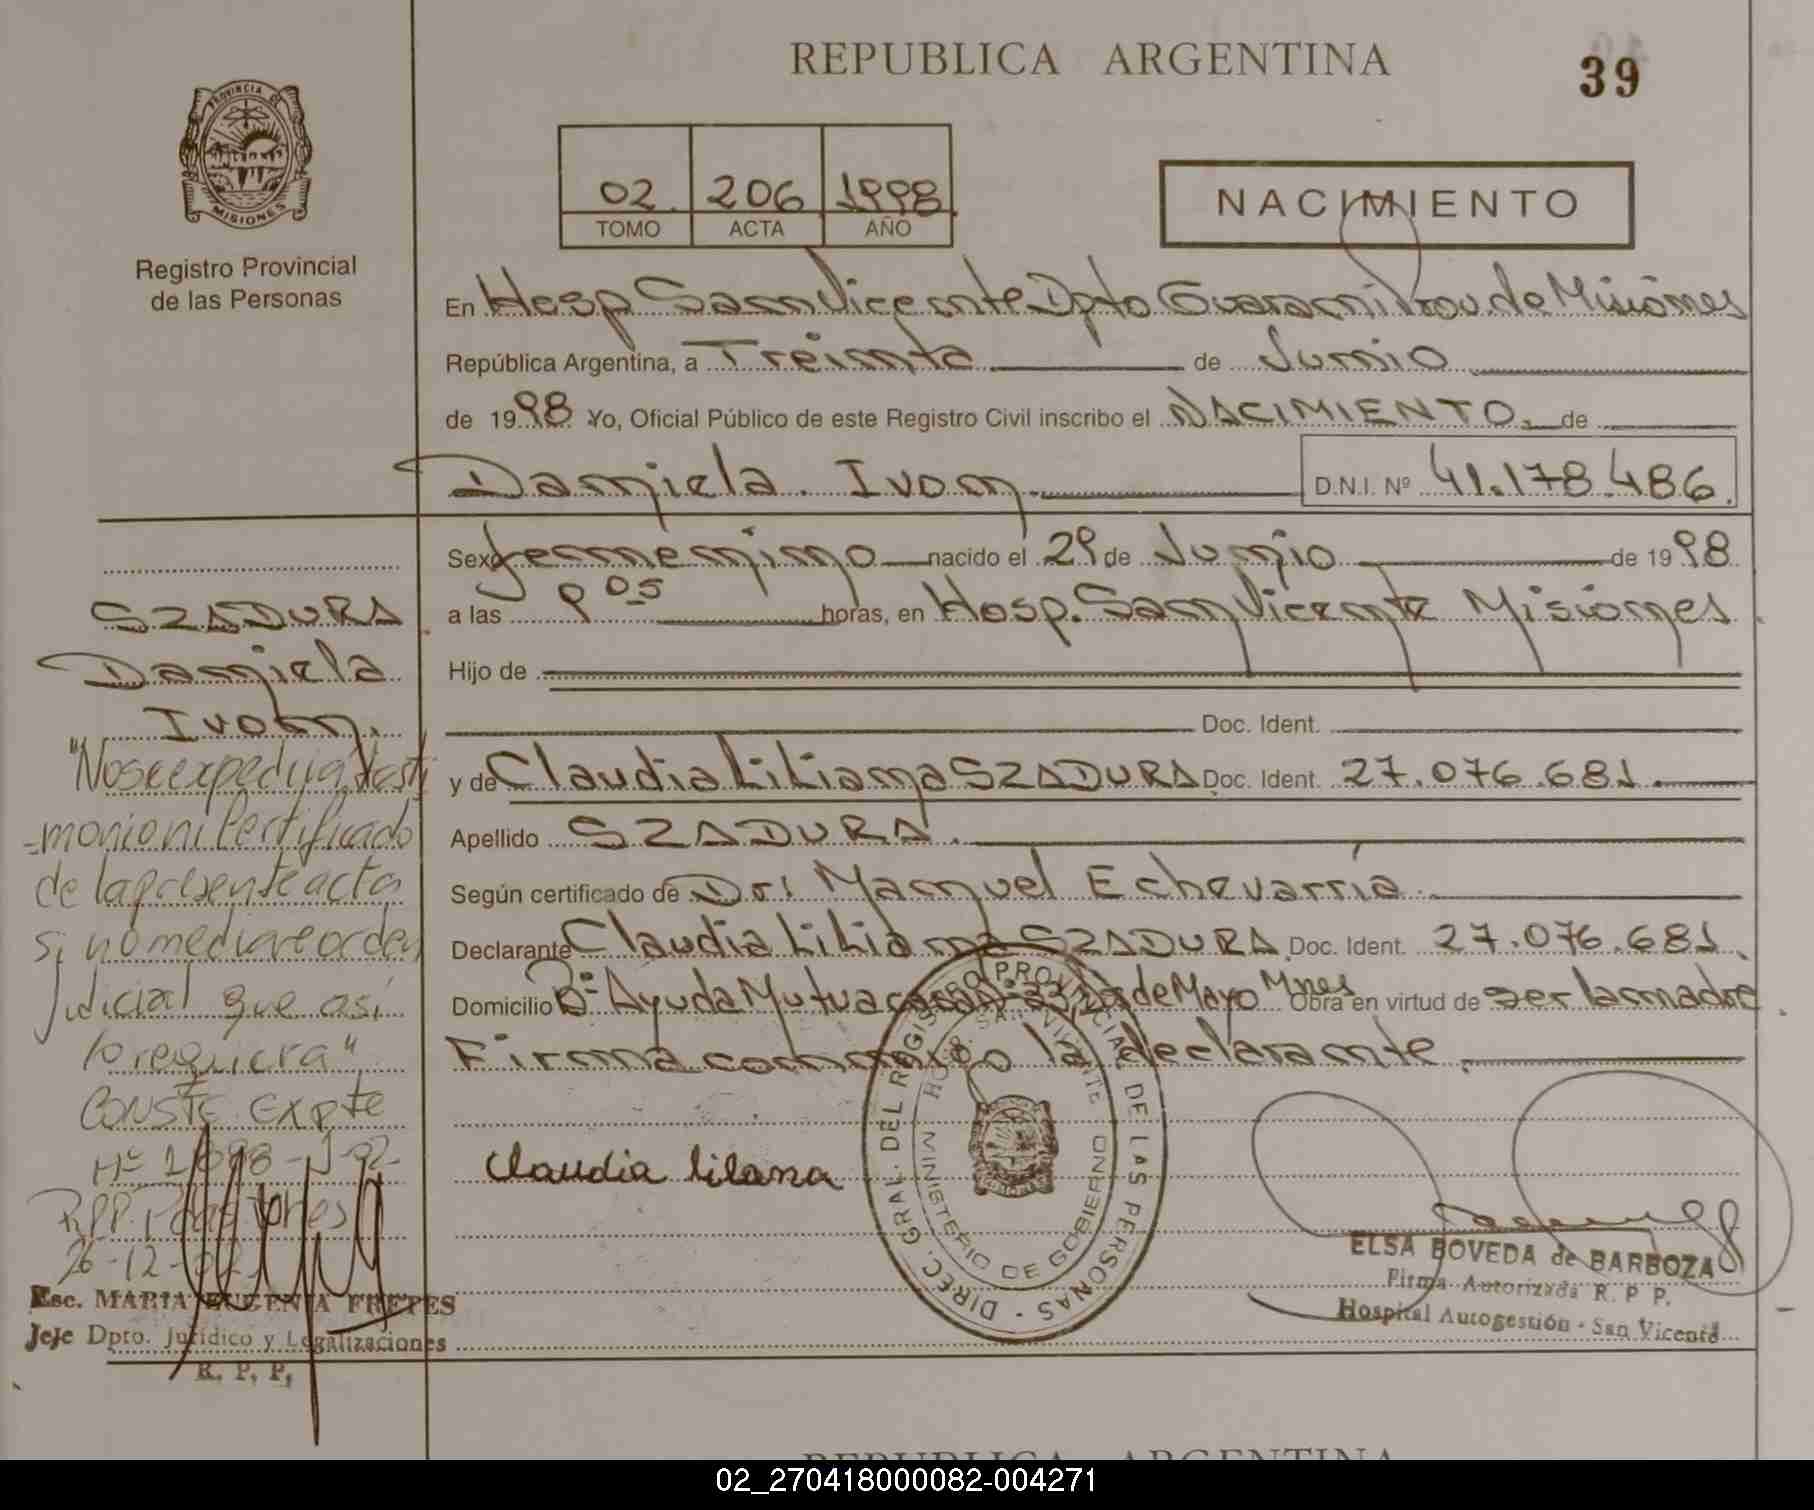 REPUBLICA ARGENTINA
39
PROVINCIA DE
MISIONES
Registro Provincial
de las Personas
02. 206 1998.
TOMO ACTA AÑO
NACIMIENTO
En Hosp San Vicente Dpto Guarani Prov. de Misiones
República Argentina, a Treinta de Junio
de 1998 Yo, Oficial Público de este Registro Civil inscribo el NACIMIENTO. de
Daniela Ivon.
D.N.I. Nº 41.178.486.
Sexo femenino nacido el 29 de Junio de 1998
a las 9 05 horas, en Hosp. San Vicente Misiones
Hijo de
Doc. Ident.
y de Claudia Liliana SZADURA Doc. Ident. 27.076.681.
Apellido SZADURA.
Según certificado de Dr: Manuel Echevarría
Declarante Claudia Liliana SZADURA Doc. Ident. 27.076.681.
Domicilio Bº Ayuda Mutua casa de Mayo Mnes Obra en virtud de ser la madre
Firma conmigo la declarante
SZADURA
Daniela
Ivon.
"No se expedirá testi
-monio ni Certificado
de la presente acta
si no mediare orden
Judicial que así
lo requiera"
CONSTE Expte
Nº
R.P.P.
26-12-
Esc. MARIA EUGENIA FRETES
Jefe Dpto. Jurídico y Legalizaciones
R. P. P.
Claudia lilana
DIREC. GRAL. DEL REGISTRO PROVINCIAL DE LAS PERSONAS
HOSP. SAN VICENTE
MINISTERIO DE GOBIERNO
ELSA BOVEDA de BARBOZA
Firma Autorizada R. P P.
Hospital Autogestión - San Vicente
REPUBLICA ARGENTINA
02_270418000082-004271